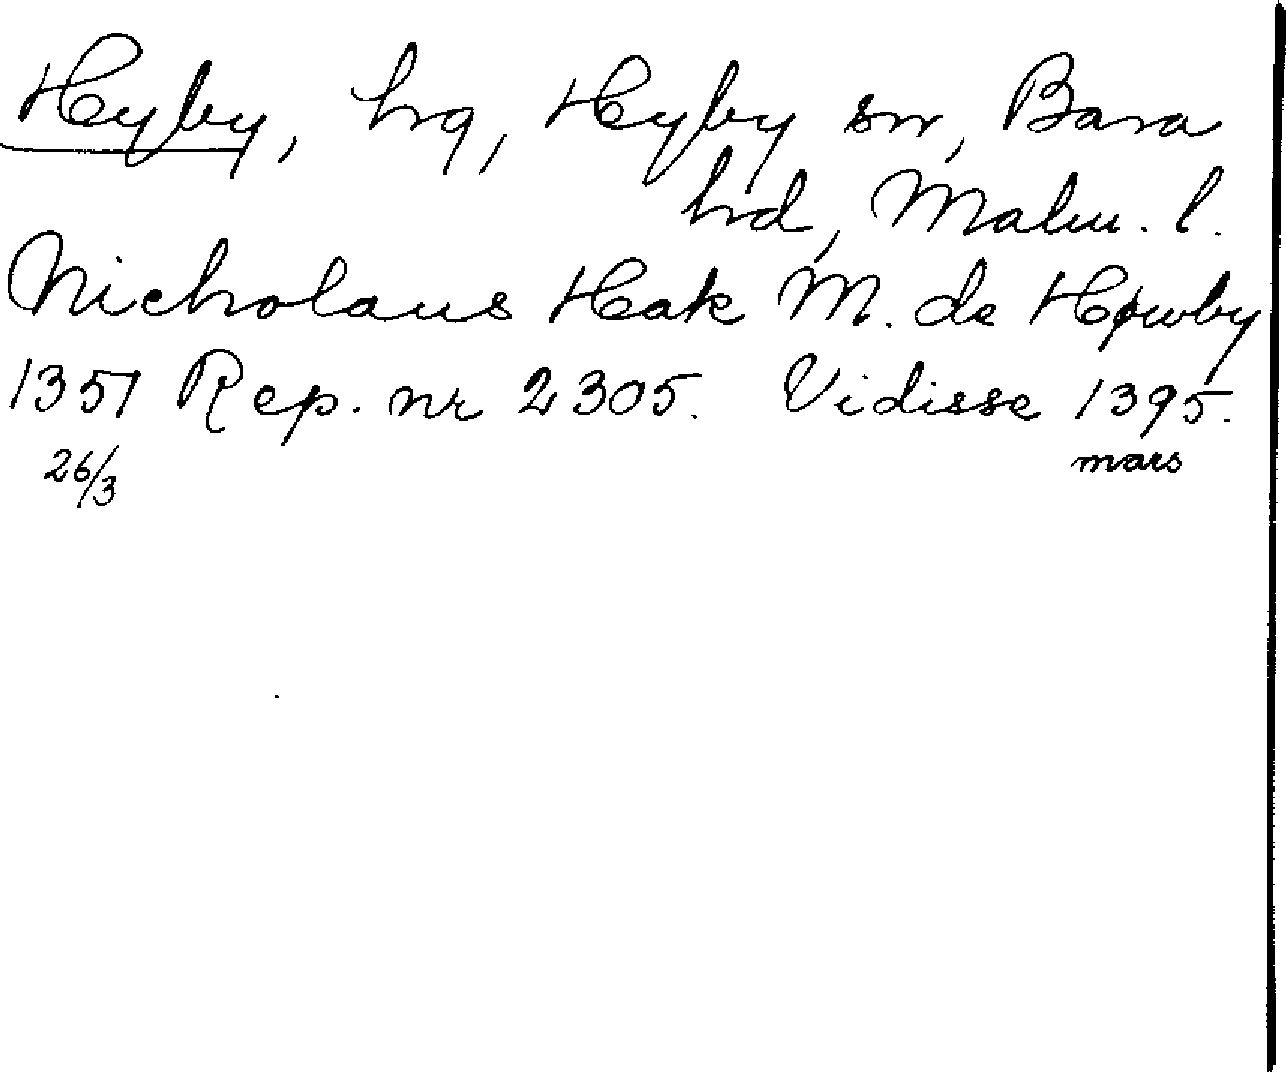 Hyby, hrg, Hyby sn, Bara
hrd, Malm. l.
Nicholaus Hak M. de Høwby
1351 Rep. nr 2305. Vidisse 1395.
26/3 mars